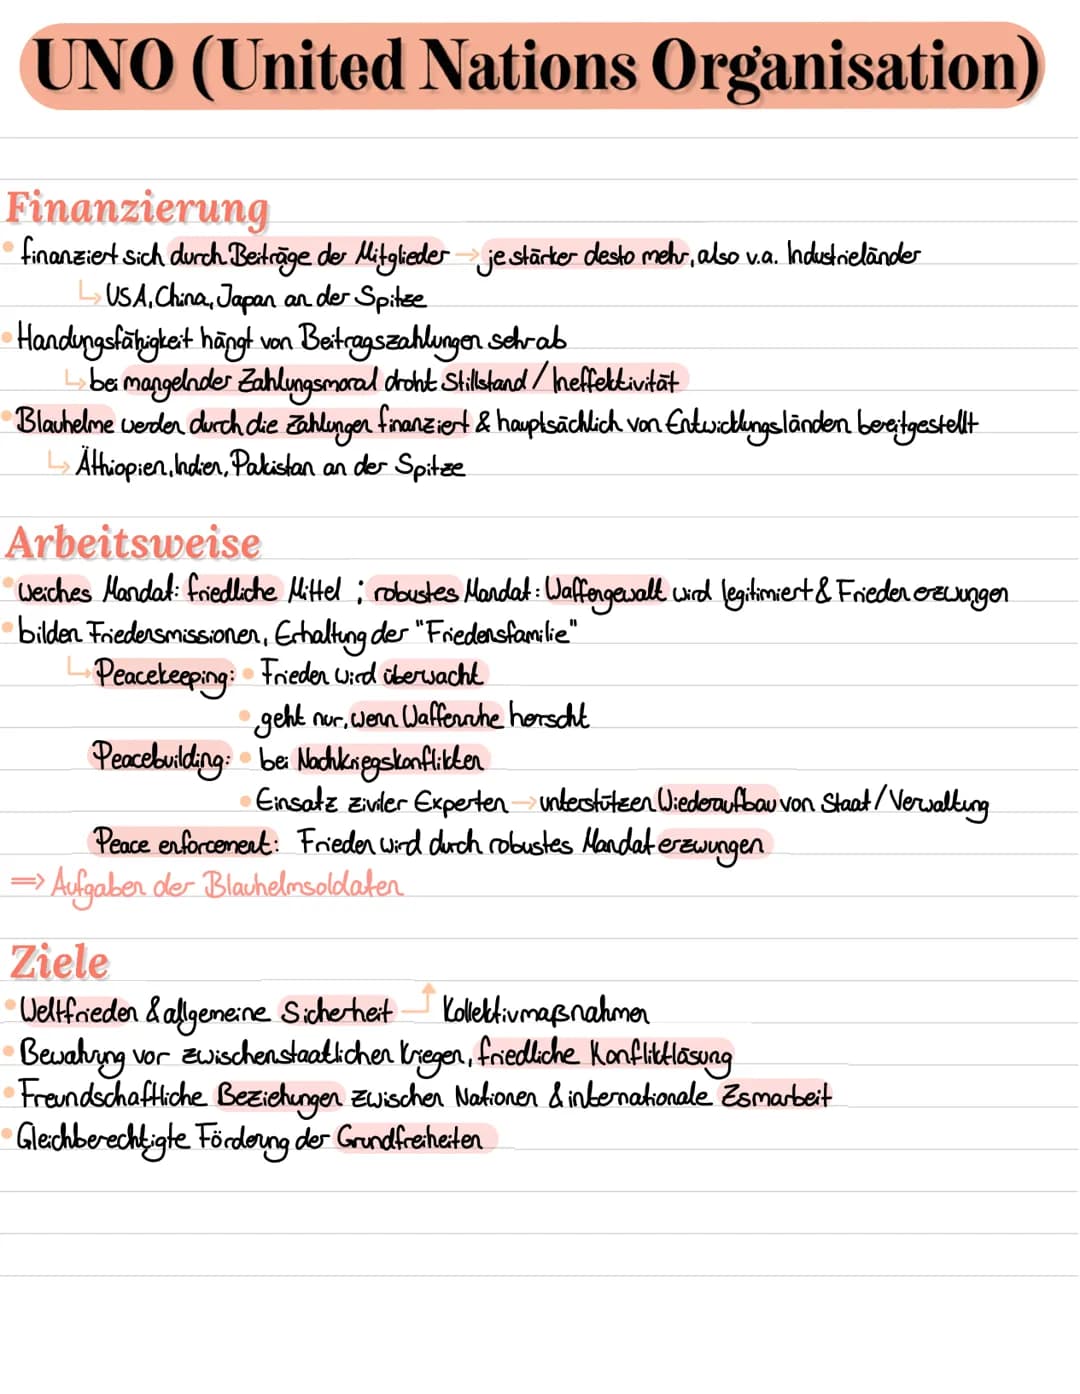 UNO (United Nations Organisation)
Finanzierung
• finanziert sich durch Beiträge der Mitglieder → je stärker desto mehr, also v.a. Industrieländer
↳ USA, China, Japan an der Spitze
• Handungsfähigkeit hängt von Beitragszahlungen sehr ab
↳ bei mangelnder Zahlungsmoral droht Stillstand / Ineffektivität
• Blauhelme werden durch die Zahlungen finanziert & hauptsächlich von Entwicklungsländen bereitgestellt
↳ Äthiopien, Indien, Pakistan an der Spitze
Arbeitsweise
• weiches Mandat: friedliche Mittel ; robustes Mandat: Waffengewalt wird legitimiert & Frieden erzwungen
• bilden Friedensmissionen, Erhaltung der "Friedensfamilie"
↳ Peacekeeping: • Frieden wird überwacht
• geht nur, wenn Waffenruhe herscht
Peacebuilding: • bei Nachkriegskonflikten
• Einsatz ziviler Experten → unterstützen Wiederaufbau von Staat / Verwaltung
Peace enforcement: Frieden wird durch robustes Mandat erzwungen
⇒ Aufgaben der Blauhelmsoldaten
Ziele
• Weltfrieden & allgemeine Sicherheit Kollektivmaßnahmen
• Bewahrung vor zwischenstaatlichen Kriegen, friedliche Konfliktlösung
• Freundschaftliche Beziehungen zwischen Nationen & internationale Zsmarbeit
• Gleichberechtigte Förderung der Grundfreiheiten